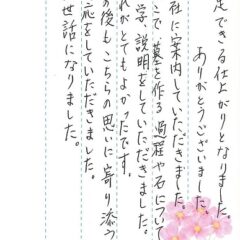 足できる仕上がりとなりました。
ありがとうございました。
社に案内していただきました。
こで、墓を作る過程や石について
学、説明をしていただきました。
れがとてもよかったです。
の後もこちらの思いに寄り添う
応をしていただきました。
世話になりました。